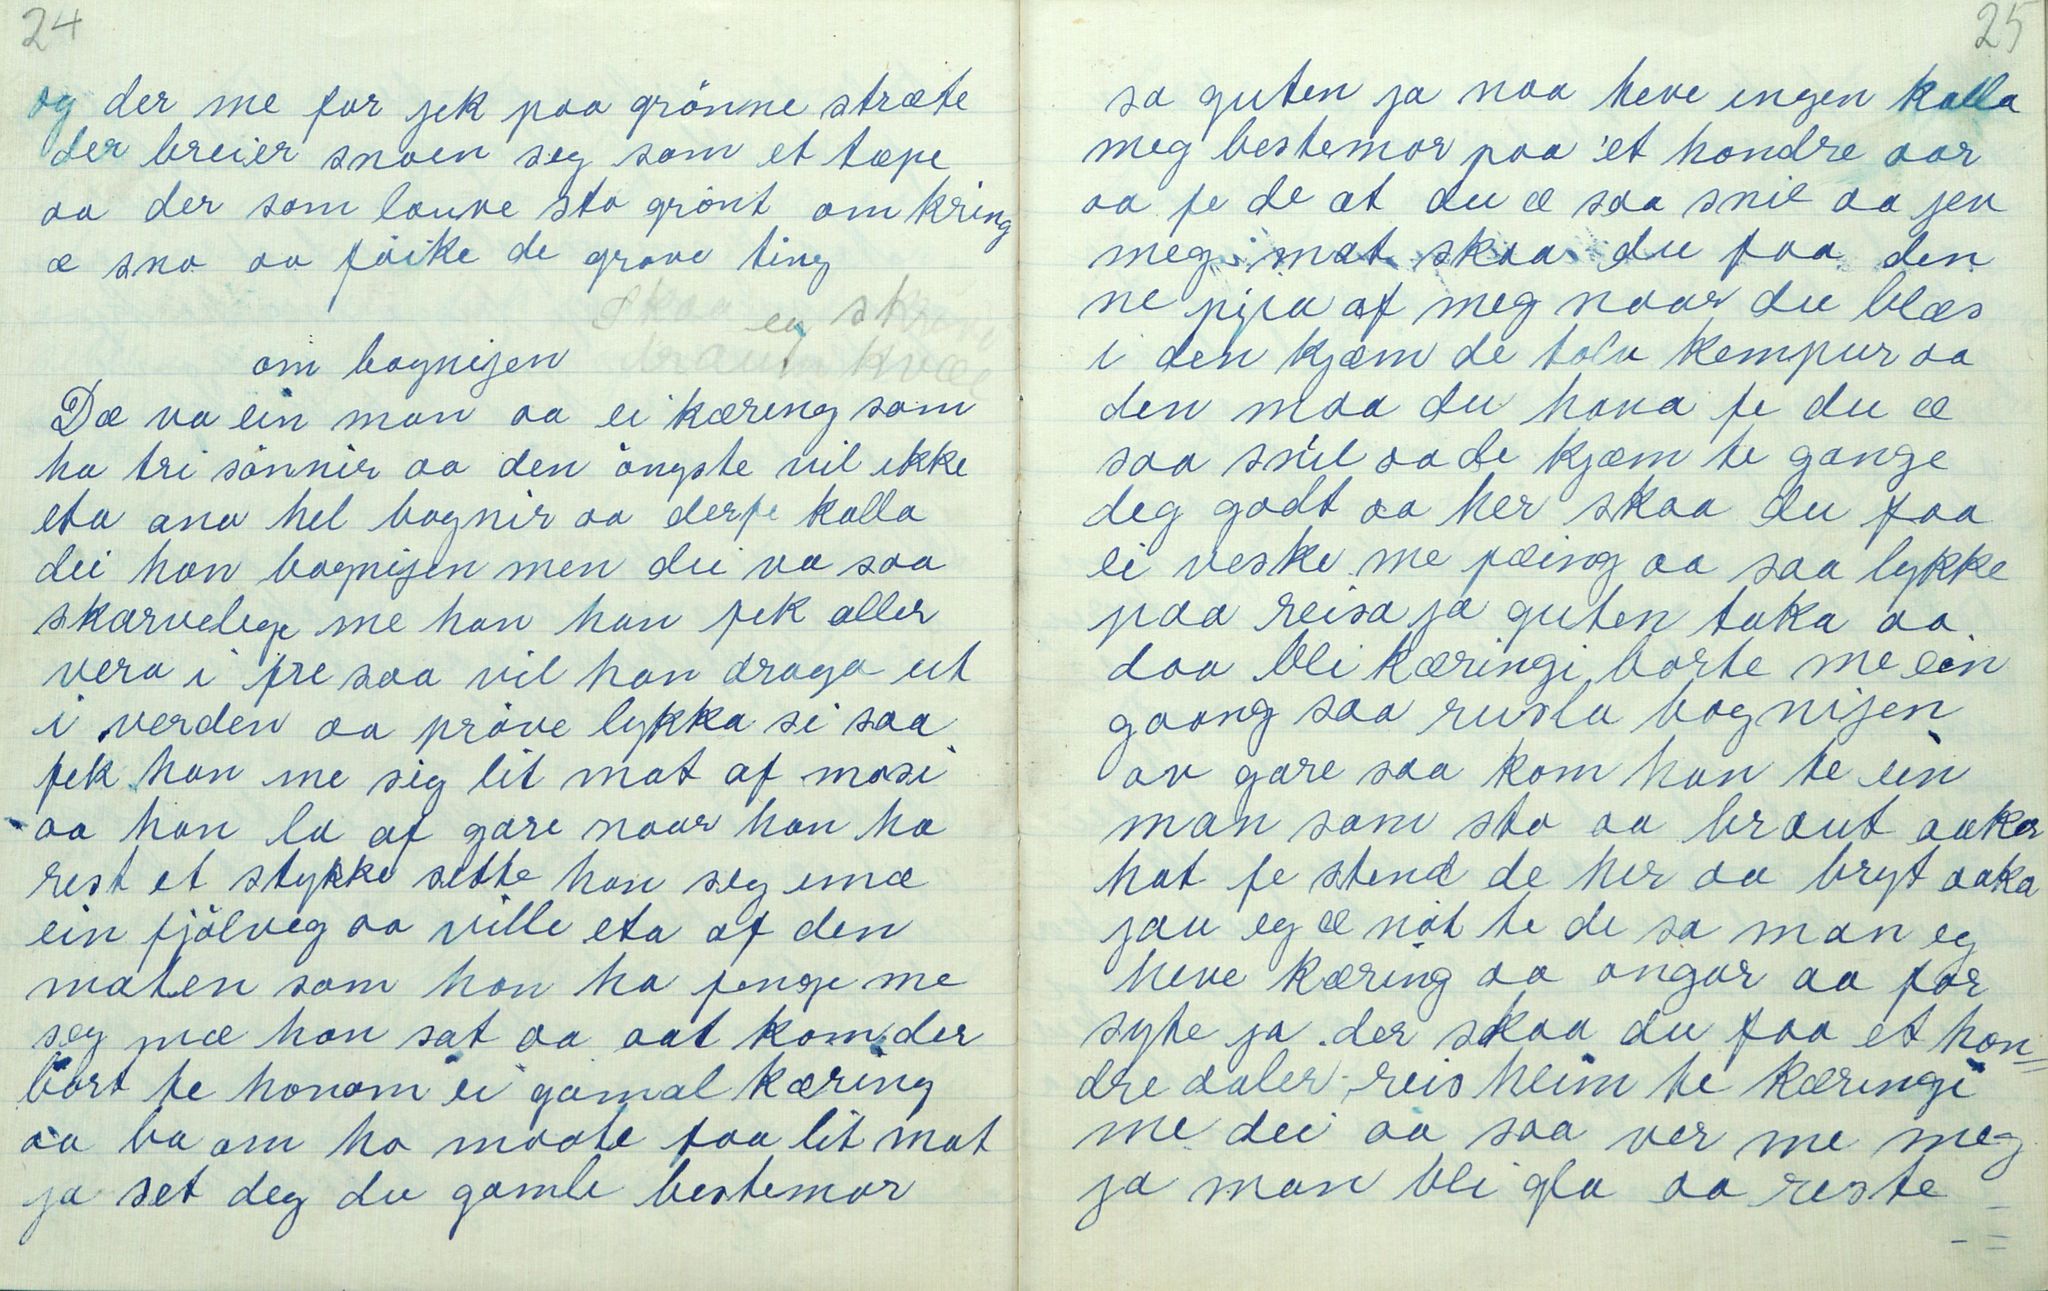 24
og der me for jek paa grönne stræte
der breier snoen seg som et tæpe
aa der som lauve sto grönt om kring
æ sno aa föike de grave ting
Skaa eg skrive
om bognijen
Dæ va ein man aa ei kæring som
ha tri sönnir aa den öngste vil ikke
eta ana hel bognir aa derfe kalla
dei han bognijen men dei va saa
skarvelege me han han fek aller
vera i fre saa vil han draga ut
i verden aa pröve lykka si saa
fek han me sig lit mat af mosi
aa han la af gare naar han ha
rest et stykke sette han seg imæ
ein fjölveg aa ville eta af den
maten som han ha fenge me
seg mæ han sat aa aat kom der
bort te honom ei gamal kæring
aa ba om ho maate faa lit mat
ja set deg du gamle bestemor
25
sa guten ja naa heve ingen kalla
meg bestemor paa et hondre aar
aa fe de at du æ saa snil aa jev
meg mat skaa du faa den
ne pipa af meg naar du blæs
i den kjæm de tolv kempur aa
den maa du hava fe du æ
saa snil aa de kjæm te gange
deg godt aa her skaa du faa
ei veske me pæing aa saa lykke
paa reisa ja guten taka aa
daa blei kæringi borte me ein
gaang saa rusla bognijen
av gare saa kom han te ein
man som sto aa braut aaker
hat fe stend de her aa bryt aaka
jau eg æ nöt te de sa man eg
heve kæring aa ongar aa for
syte ja der skaa du faa et hon=
dre daler reis heim te kæringi
me dei aa saa ver me meg
ja man blei gla aa reste